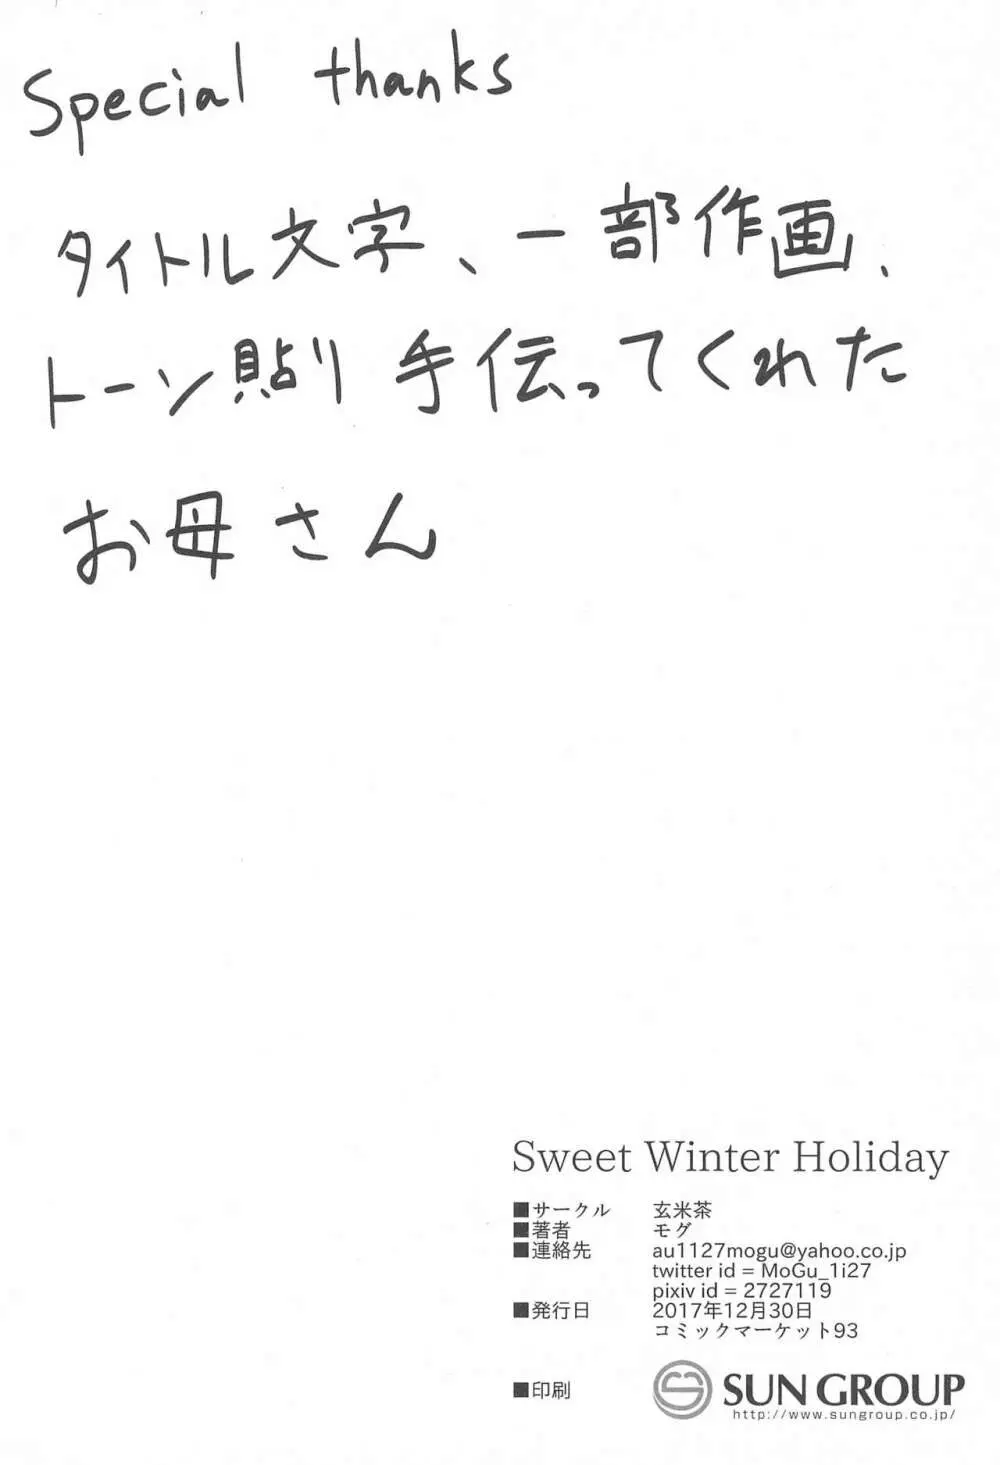 Special thanks
タイトル文字、一部作画、
トーン貼り 手伝ってくれた
お母さん
Sweet Winter Holiday
■サークル 玄米茶
■著者 モグ
■連絡先 au1127mogu@yahoo.co.jp
twitter id = MoGu_1i27
pixiv id = 2727119
■発行日 2017年12月30日
コミックマーケット93
■印刷 SUN GROUP
http://www.sungroup.co.jp/